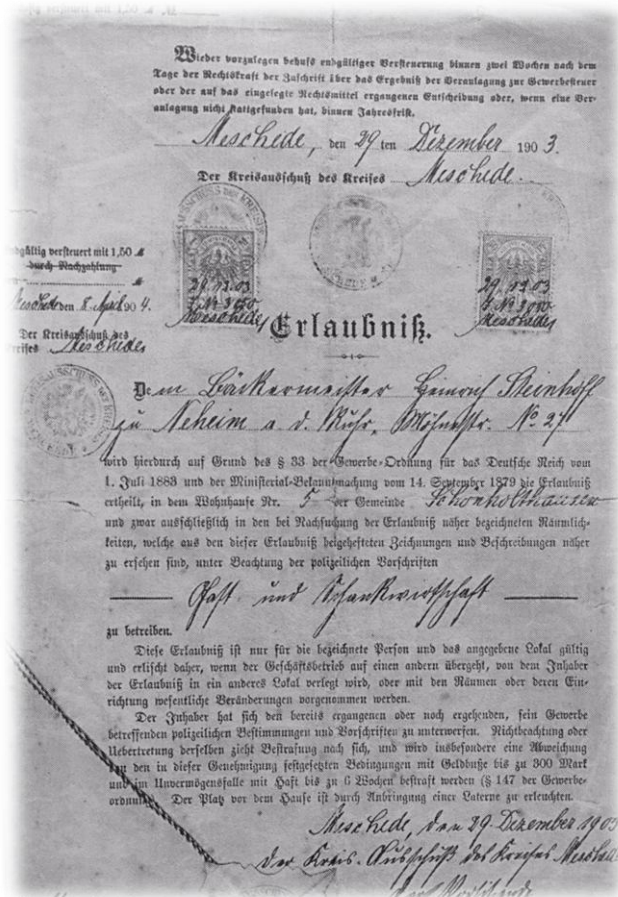 Wieder vorzulegen behufs endgültiger Versteuerung binnen zwei Wochen nach dem
Tage der Rechtskraft der Zuschrift über das Ergebniß der Veranlagung zur Gewerbesteuer
oder der auf das eingelegte Rechtsmittel ergangenen Entscheidung oder, wenn eine Ver-
anlagung nicht stattgefunden hat, binnen Jahresfrist.
Meschede, den 29 ten Dezember 1903.
Der Kreisausschuß des Kreises Meschede.
endgültig versteuert mit 1,50 M
durch Nachzahlung
Meschede den 8. April 1904.
Der Kreisausschuß des
Kreises Meschede
29.12.03
J. № 3050
Meschede
29.12.03
J. № 3050
Meschede
Erlaubniß.
Dem Bäckermeister Heinrich Steinhoff
zu Neheim a. d. Ruhr, Möhnestr. No 27
wird hierdurch auf Grund des § 33 der Gewerbe-Ordnung für das Deutsche Reich vom
1. Juli 1883 und der Ministerial-Bekanntmachung vom 14. September 1879 die Erlaubniß
ertheilt, in dem Wohnhause Nr. 5 der Gemeinde Schönholthausen
und zwar ausschließlich in den bei Nachsuchung der Erlaubniß näher bezeichneten Räumlich-
keiten, welche aus den dieser Erlaubniß beigehefteten Zeichnungen und Beschreibungen näher
zu ersehen sind, unter Beachtung der polizeilichen Vorschriften
Gast- und Schankwirtschaft
zu betreiben.
Diese Erlaubniß ist nur für die bezeichnete Person und das angegebene Lokal gültig
und erlischt daher, wenn der Geschäftsbetrieb auf einen andern übergeht, von dem Inhaber
der Erlaubniß in ein anderes Lokal verlegt wird, oder mit den Räumen oder deren Ein-
richtung wesentliche Veränderungen vorgenommen werden.
Der Inhaber hat sich den bereits ergangenen oder noch ergehenden, sein Gewerbe
betreffenden polizeilichen Bestimmungen und Vorschriften zu unterwerfen. Nichtbeachtung oder
Uebertretung derselben zieht Bestrafung nach sich, und wird insbesondere eine Abweichung
von den in dieser Genehmigung festgesetzten Bedingungen mit Geldbuße bis zu 300 Mark
und im Unvermögensfalle mit Haft bis zu 6 Wochen bestraft werden (§ 147 der Gewerbe-
ordnung). Der Platz vor dem Hause ist durch Anbringung einer Laterne zu erleuchten.
Meschede, den 29. Dezember 1903
Der Kreis-Ausschuß des Kreises Meschede
Der Vorsitzende